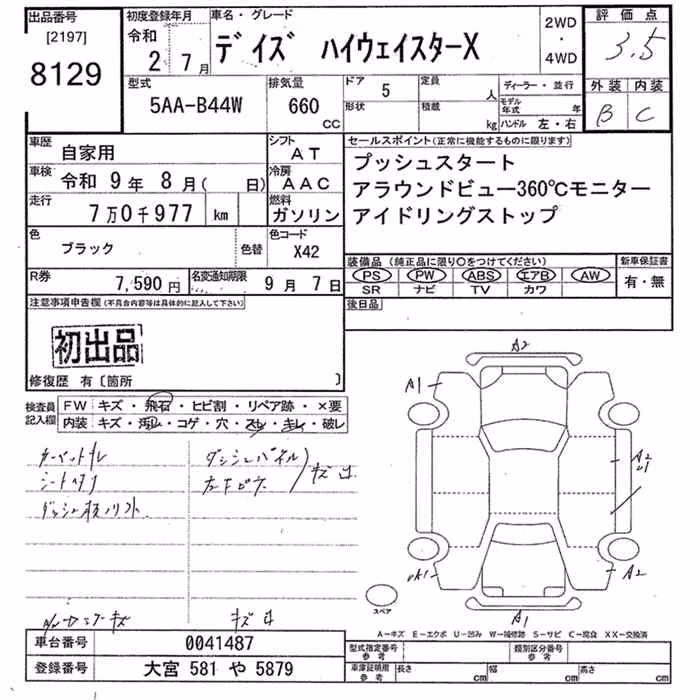 出品番号
[2197]
8129
初度登録年月
令和
2 7月
車名・グレード
デイズ ハイウェイスターX
2WD
・
4WD
評価点
3.5
外装 内装
B C
型式
5AA-B44W
排気量
660
cc
ドア 5
形状
定員
人
積載
kg
ディーラー・並行
モデル年式 年
ハンドル 左・右
車歴
自家用
シフト
AT
車検
令和 9年 8月( 日)
冷房
AAC
走行
7万0千977 km
燃料
ガソリン
色
ブラック
色替
色コード
X42
R券
7,590円
名変通知期限
9月 7日
セールスポイント(正常に機能するものに限ります)
プッシュスタート
アラウンドビュー360℃モニター
アイドリングストップ
装備品 (純正品に限り○をつけてください)
PS PW ABS エアB AW
SR ナビ TV カワ
新車保証書
有・無
後日品
注意事項申告欄(不具合内容等は具体的に記入して下さい)
初出品
修復歴 有〔箇所 〕
検査員
記入欄
FW キズ・飛石・ヒビ割・リペア跡・×要
内装 キズ・汚れ・コゲ・穴・スレ・キレ・破レ
シートヘタリ
ダッシュパネル
キズ
A2
A1
A2
A1
A2
A1
スペア
A-キズ E-エクボ U-凹み W-補修跡 S-サビ C-腐食 XX-交換済
車台番号 0041487
登録番号 大宮 581 や 5879
型式指定番号
参考
類別区分番号
参考
車庫証明用
参考
長さ cm
幅 cm
高さ cm